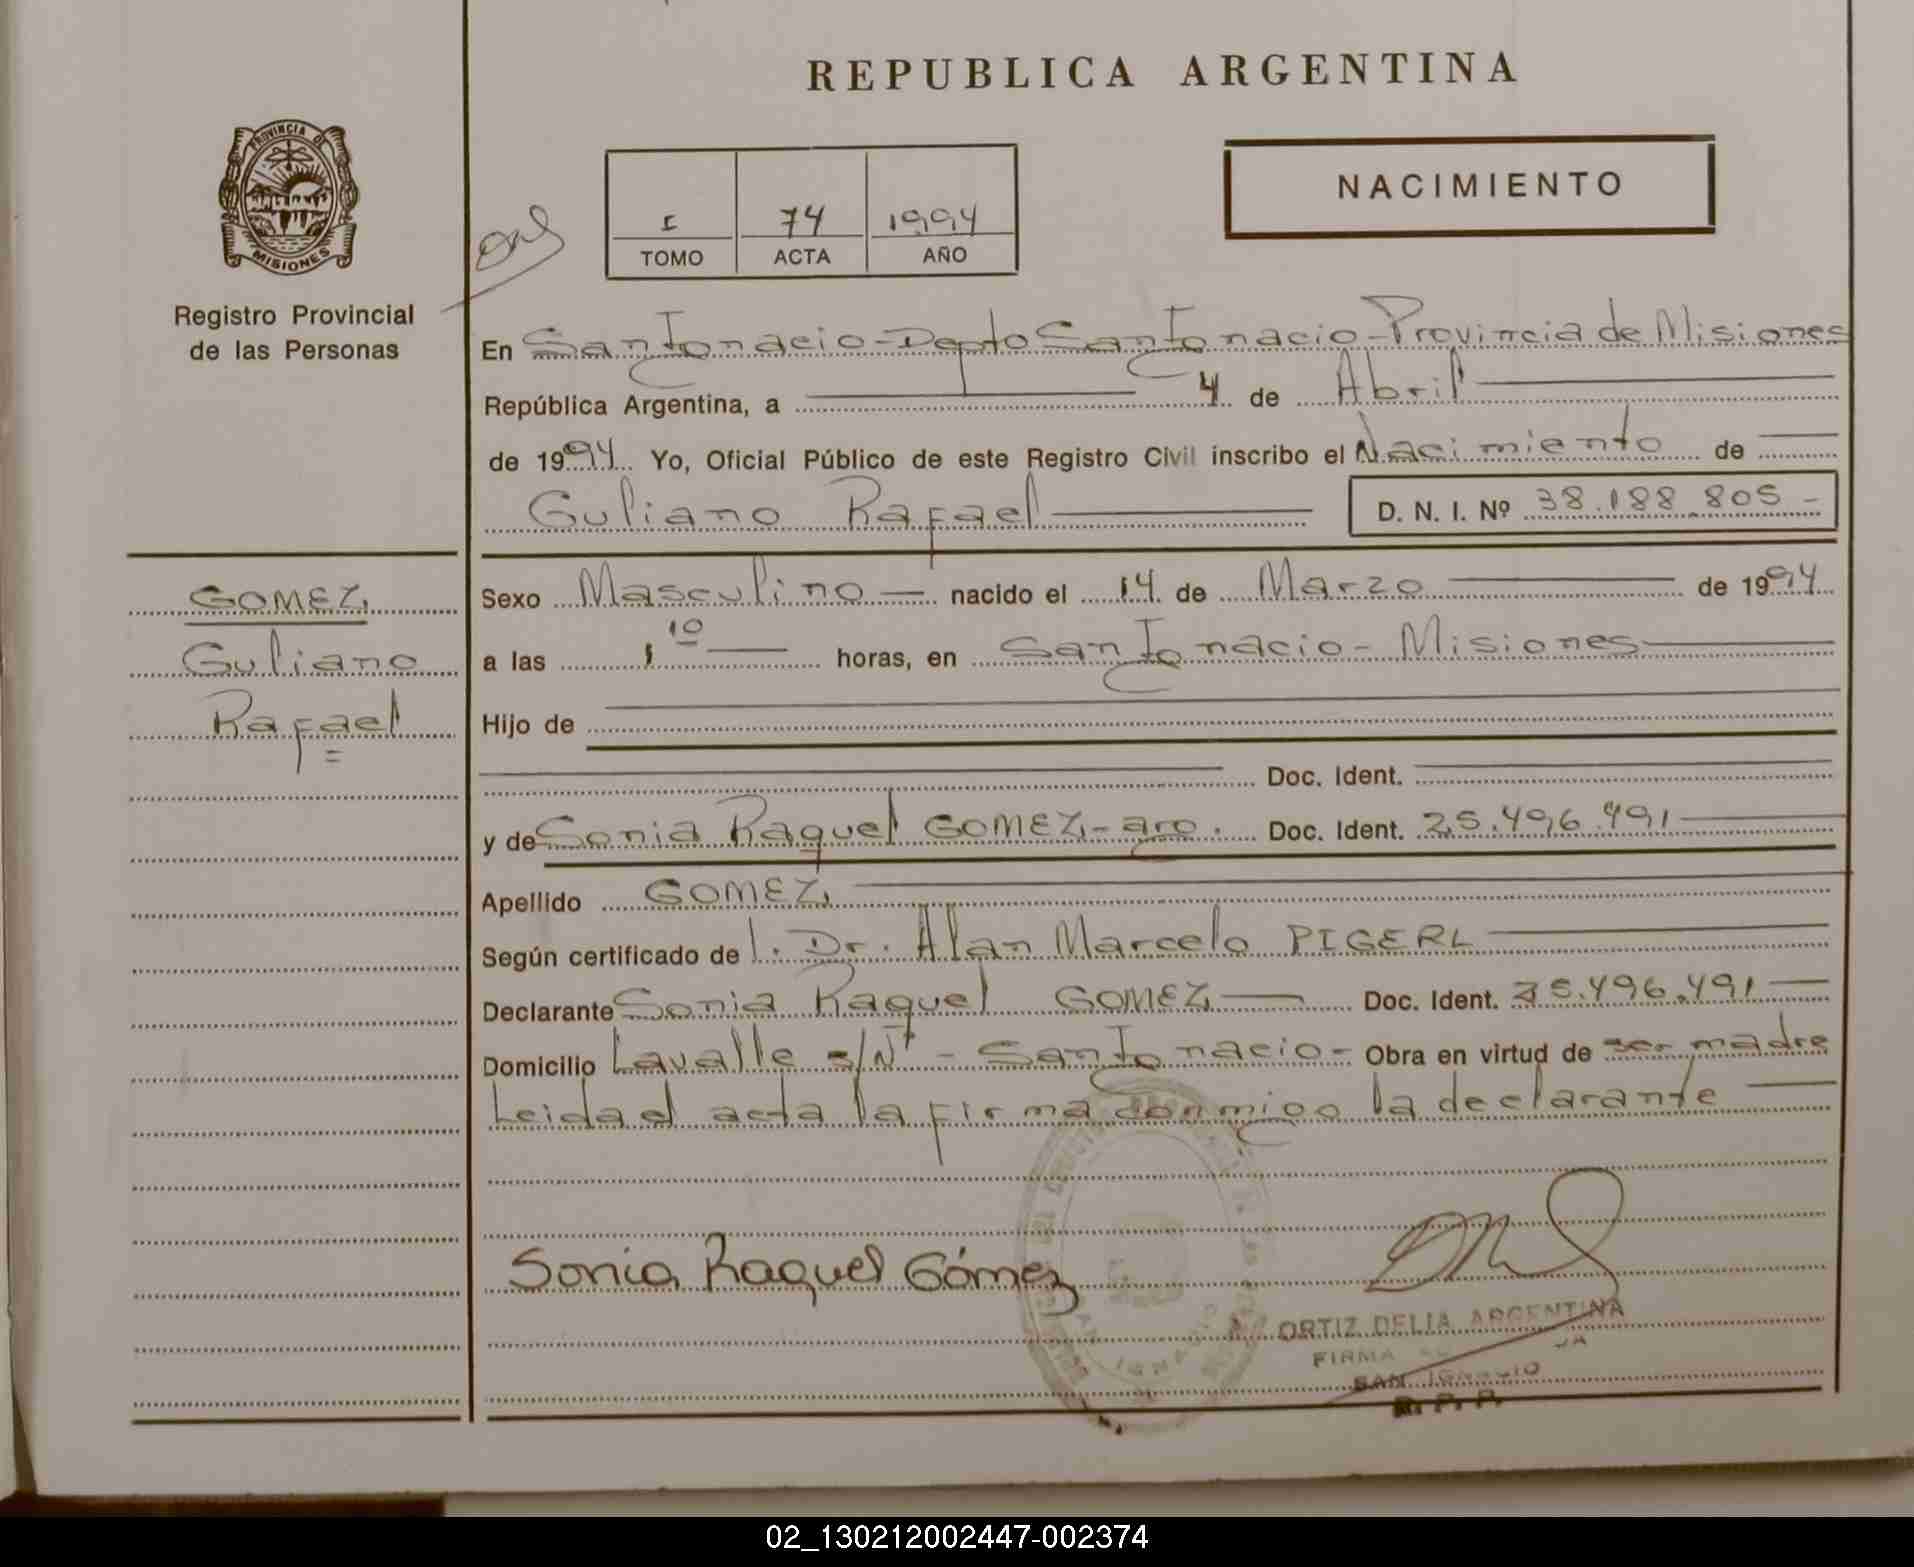 REPUBLICA ARGENTINA
PROVINCIA DE
MISIONES
Registro Provincial
de las Personas
I 74 1994
TOMO ACTA AÑO
NACIMIENTO
En San Ignacio - Depto San Ignacio - Provincia de Misiones
República Argentina, a 4 de Abril
de 1994. Yo, Oficial Público de este Registro Civil inscribo el Nacimiento de
Guliano Rafael D. N. I. Nº 38.188.805 -
GOMEZ
Guliano
Rafael
Sexo Masculino — nacido el 14 de Marzo de 1994
a las 1 10 — horas, en San Ignacio - Misiones
Hijo de
Doc. Ident.
y de Sonia Raquel GOMEZ - arg. Doc. Ident. 25.496.491
Apellido GOMEZ
Según certificado de l. Dr. Alan Marcelo PIGERL
Declarante Sonia Raquel GOMEZ — Doc. Ident. 25.496.491 —
Domicilio Lavalle s/Nº - San Ignacio - Obra en virtud de ser madre
Leida el acta la firma conmigo la declarante
Sonia Raquel Gómez
ORTIZ DELIA ARGENTINA
FIRMA
SAN IGNACIO
R. P. P.
SAN IGNACIO
02_130212002447-002374